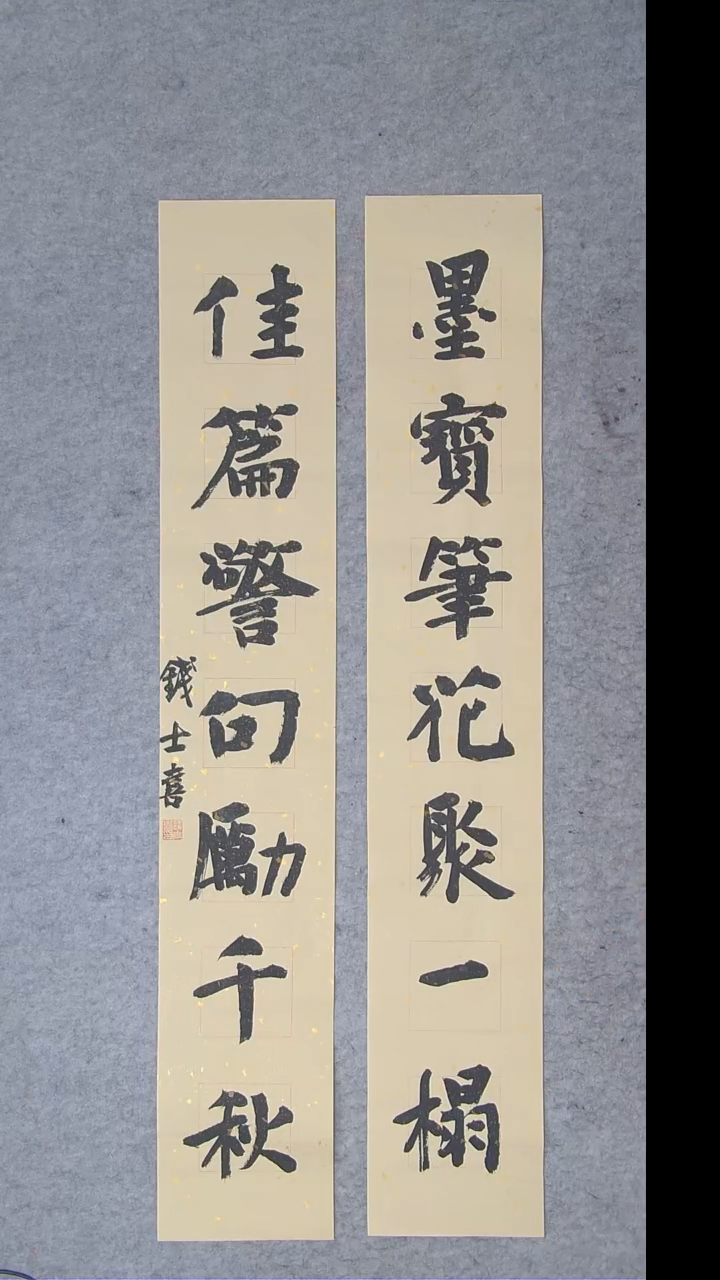 墨寶筆花聚一榻
佳篇警句勵千秋
錢士喜